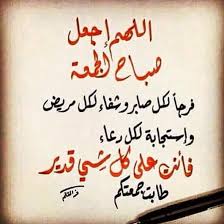 اللهم إجعل
صباح الجمعة
فرجاً لكل صابر وشفاء لكل مريض
وإستجابة لكل دعاء
فأنك على كل شيئ قدير
طابت جمعتكم